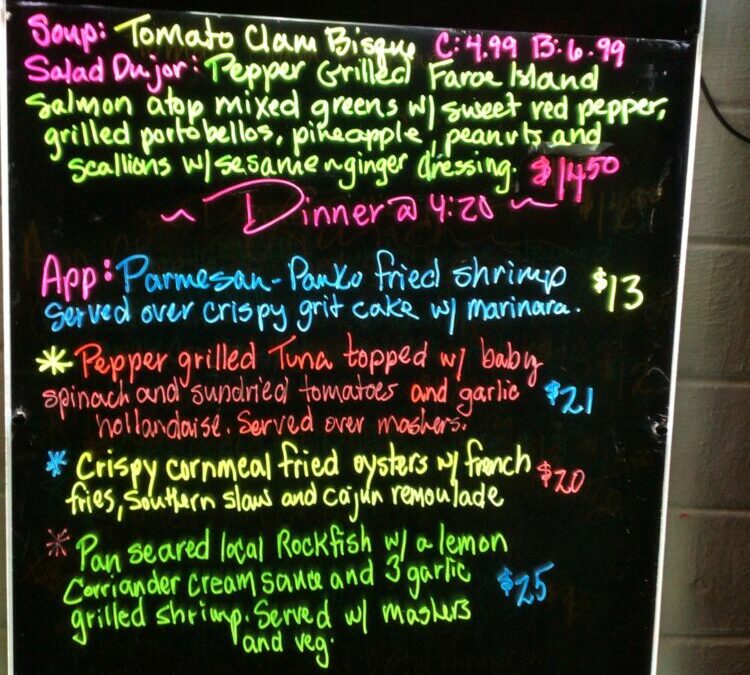 Soup: Tomato Clam Bisque C: 4.99 B: 6.99
Salad Dujor: Pepper Grilled Faroe Island
Salmon atop mixed greens w/ sweet red pepper,
grilled portobellos, pineapple, peanuts and
scallions w/ sesame-ginger dressing. $14.50
~ Dinner @ 4:20 ~
App: Parmesan-Panko fried shrimp
served over crispy grit cake w/ marinara. $13
* Pepper grilled Tuna topped w/ baby
spinach and sundried tomatoes and garlic $21
hollandaise. Served over mashers.
* Crispy cornmeal fried oysters w/ french $20
fries, Southern slaw and cajun remoulade
* Pan seared local Rockfish w/ a lemon
Corriander cream sauce and 3 garlic $25
grilled shrimp. Served w/ mashers
and veg.